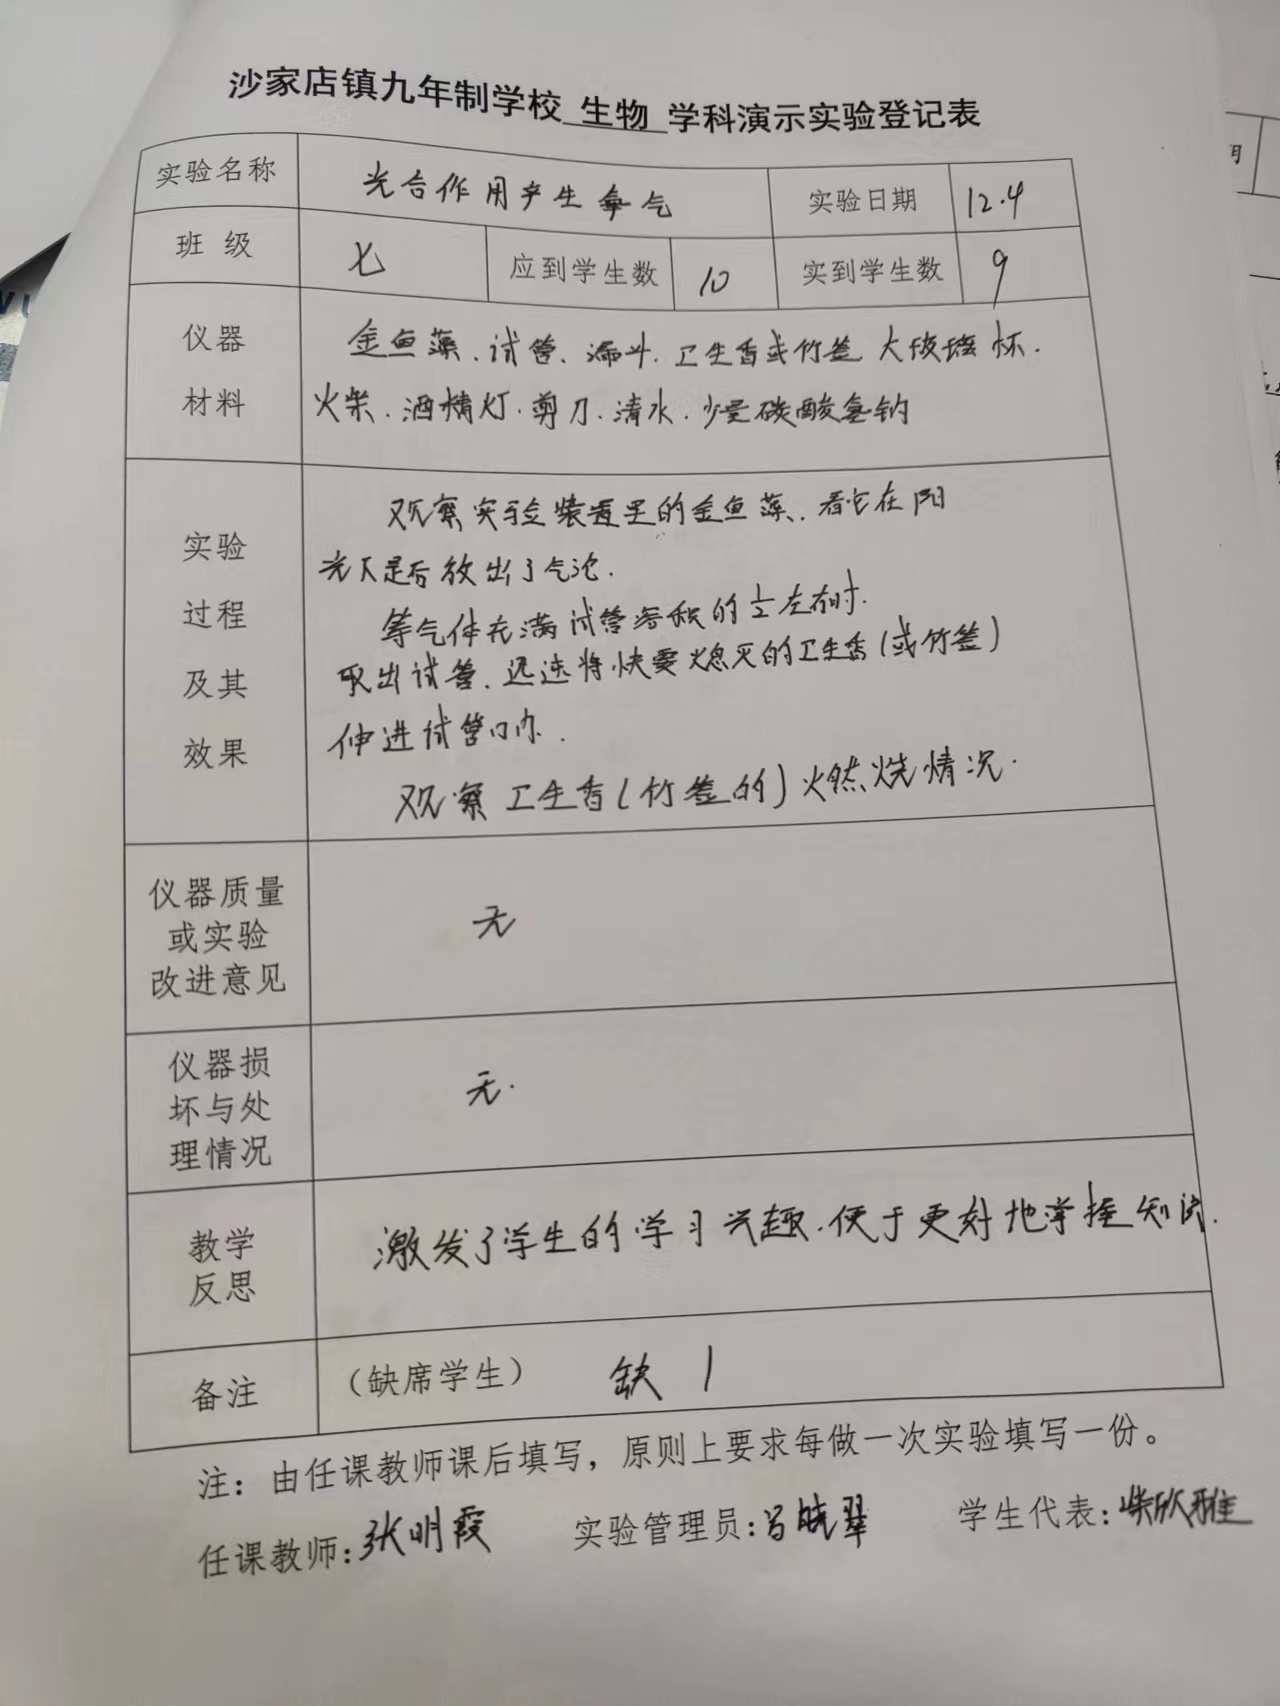 沙家店镇九年制学校 生物 学科演示实验登记表
实验名称 光合作用产生氧气 实验日期 12.4
班级 七 应到学生数 10 实到学生数 9
仪器 金鱼藻、试管、漏斗、卫生香或竹签 大玻璃杯.
材料 火柴.酒精灯.剪刀.清水.少量碳酸氢钠
观察实验装置里的金鱼藻、看它在阳
实验
光下是否放出了气泡.
过程 等气体充满试管容积的1/2左右时.
及其 取出试管、迅速将快要熄灭的卫生香(或竹签)
效果 伸进试管口内.
观察卫生香(竹签的)火燃烧情况.
仪器质量
或实验 无
改进意见
仪器损
坏与处 无.
理情况
教学 激发了学生的学习兴趣.便于更好地掌握知识.
反思
备注 (缺席学生) 缺1
注:由任课教师课后填写,原则上要求每做一次实验填写一份。
任课教师:张明霞 实验管理员: 学生代表: